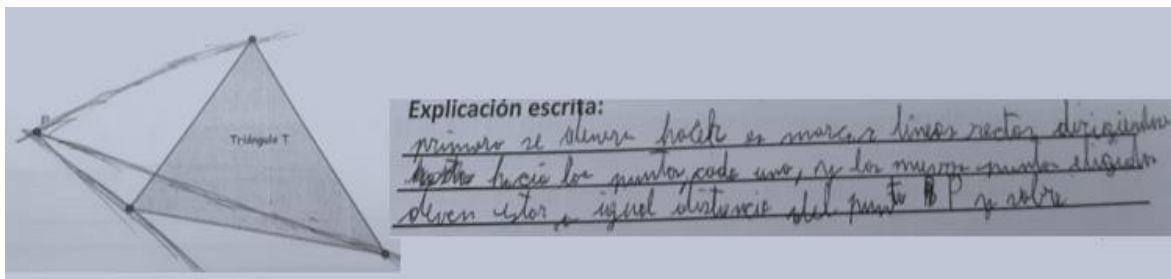 P
Triángulo T
Explicación escrita:
primero se devera hacer es marcar lineas rectas dirigiendose
hacia los puntos, cada uno, y los mismos puntos elegidos
deven estar a igual distancia del punto P y sobre